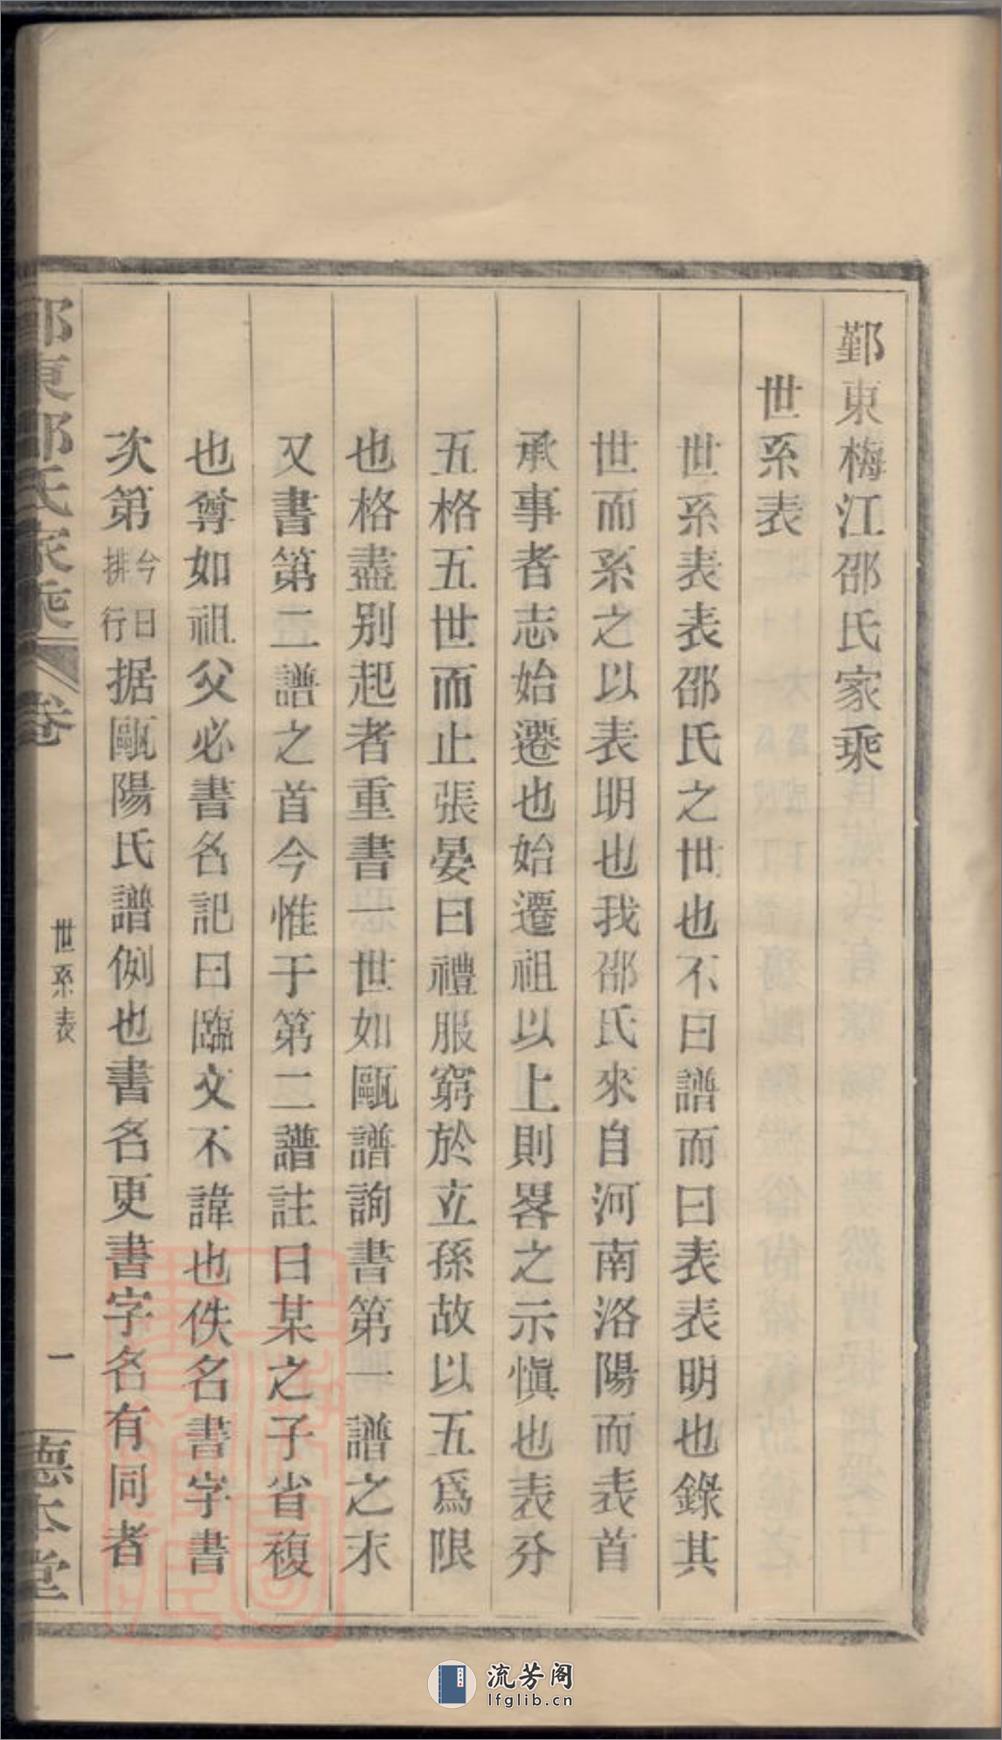 鄞東梅江邵氏家乘
世系表
世系表表邵氏之世也不曰譜而曰表表明也錄其
世而系之以表明也我邵氏來自河南洛陽而表首
承事者志始遷也始遷祖以上則畧之示愼也表分
五格五世而止張晏曰禮服窮於玄孫故以五爲限
也格盡别起者重書一世如甌譜詢書第一譜之末
又書第二譜之首今惟于第二譜註曰某之子省複
也尊如祖父必書名記曰臨文不諱也佚名書字書
次第今日排行据甌陽氏譜例也書名更書字名有同者
東邵氏家乘
卷
世系表
一
德本堂
流芳阁
lfglib.cn